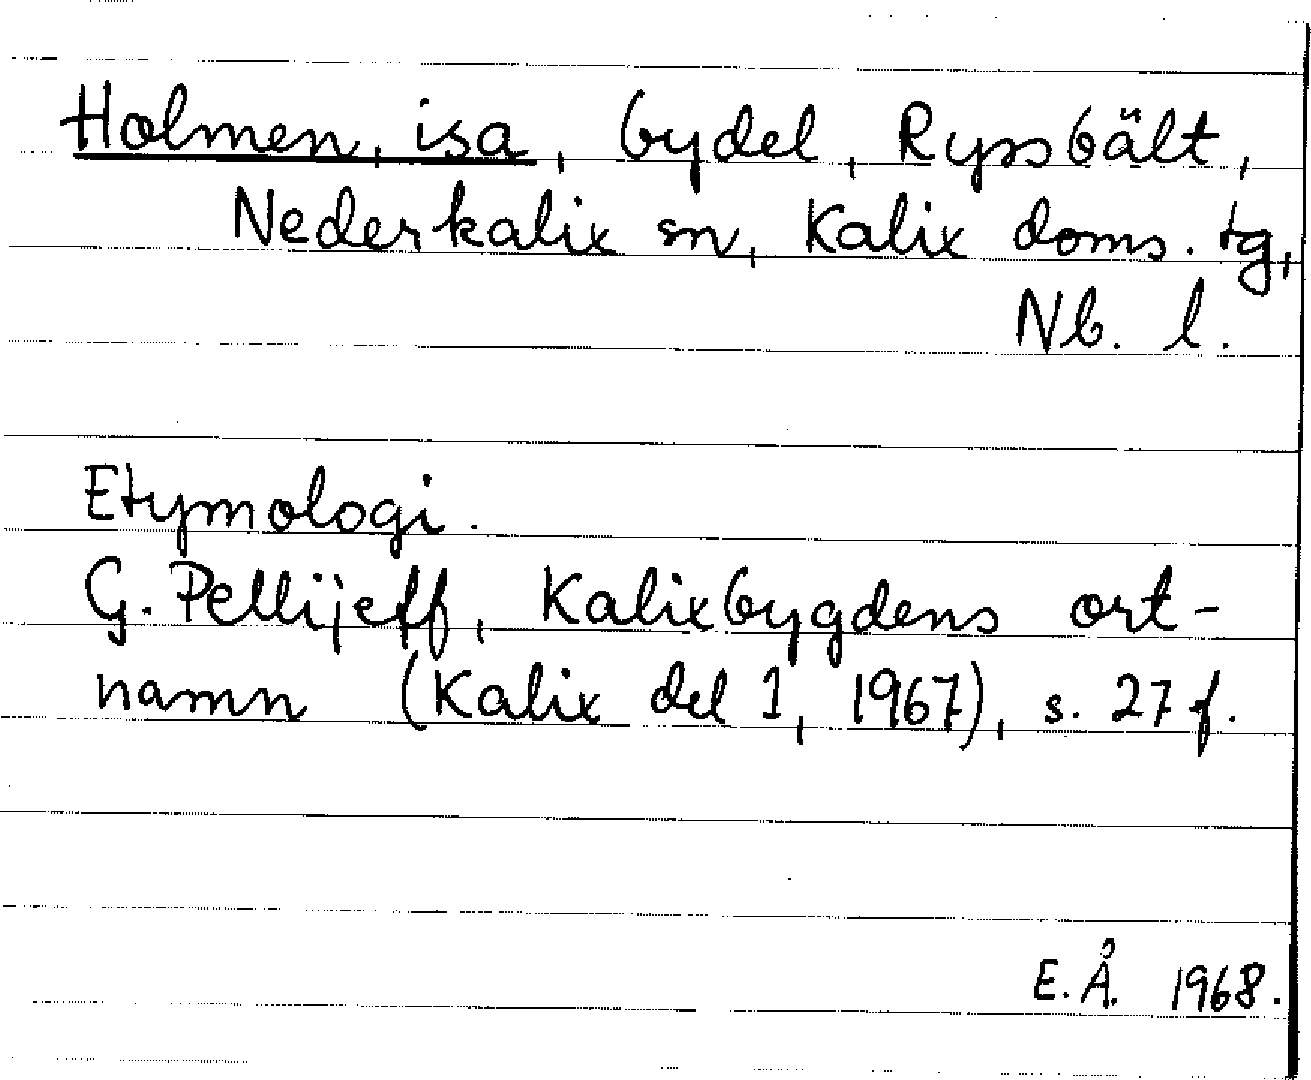 Holmen, isa, bydel, Ryssbält,
Nederkalix sn, Kalix doms. tg,
Nb. l.
Etymologi.
G. Pellijeff, Kalixbygdens ort-
namn (Kalix del 1, 1967), s. 27 f.
E. Å. 1968.